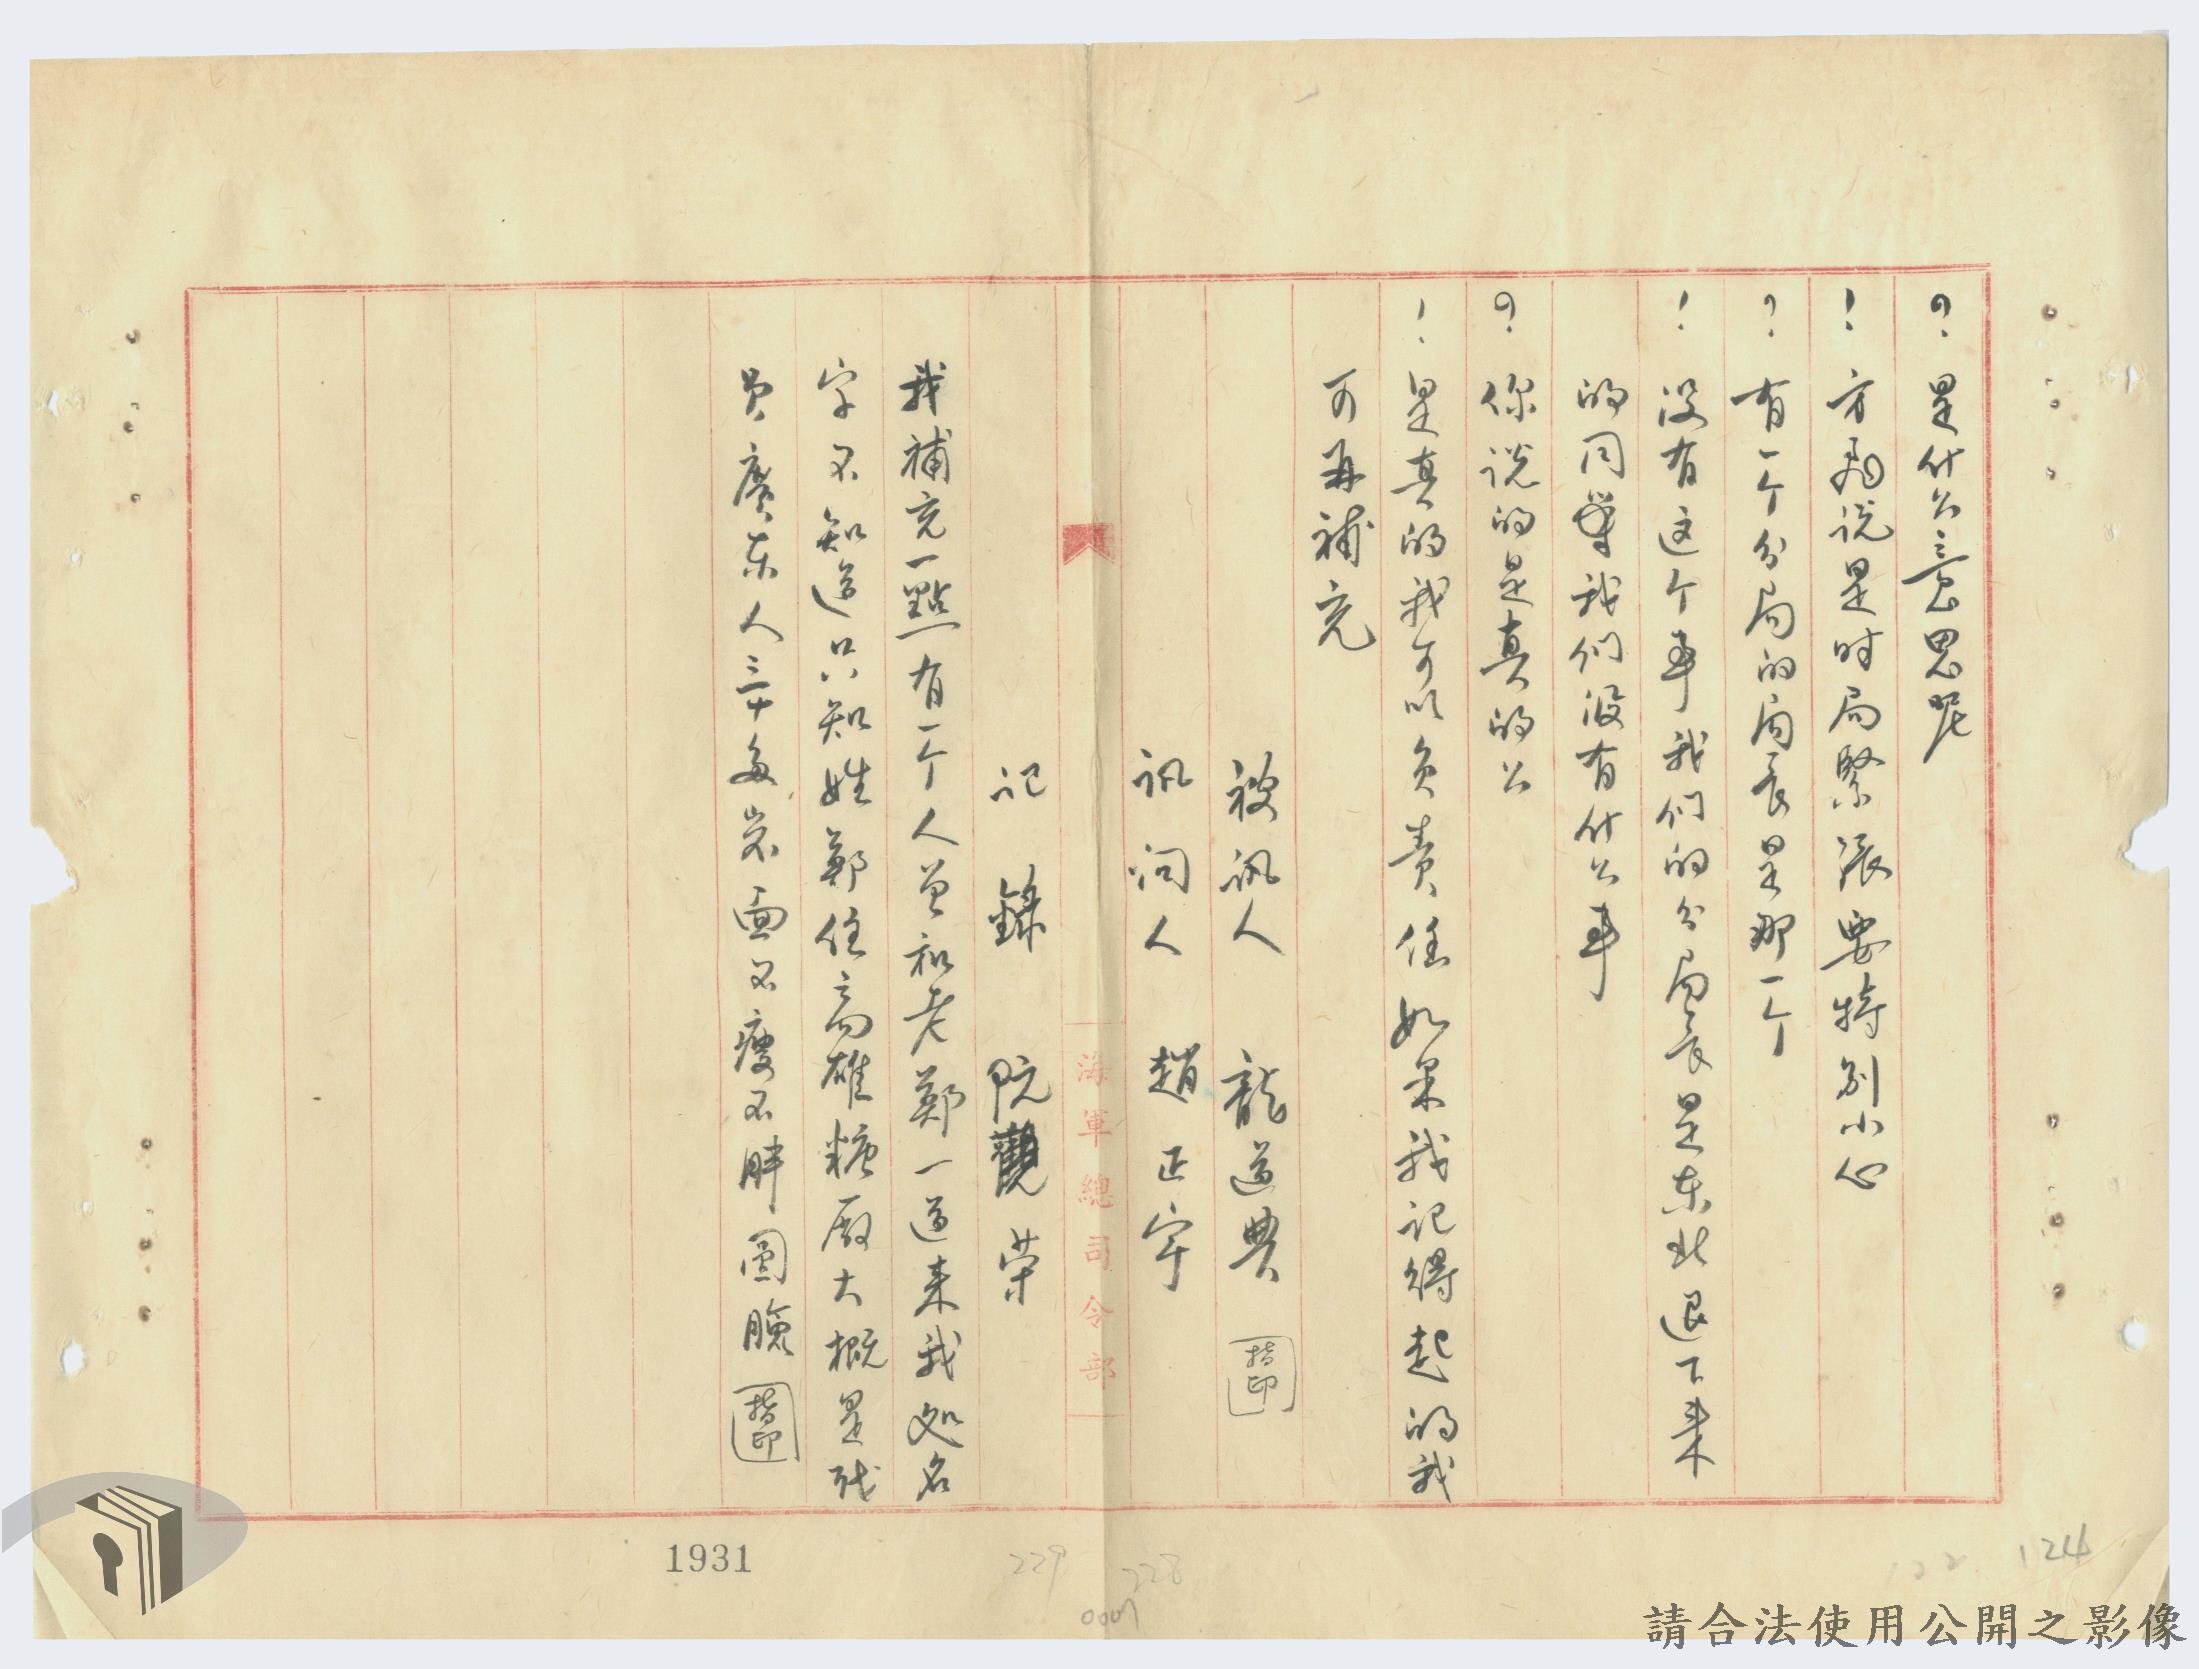 ？是什么意思呢
！方翱说是时局緊張要特别小心
？有一个分局的局長是那一个
！没有这个事我们的分局長是东北退下来
的同學我们没有什么事
？你说的是真的么
！是真的我可以负责任如果我记得起的我
可再補充
被訊人　龍道典　指印
訊问人　趙正宇
海軍總司令部
记錄　阮觀荣
我補充一點有一个人曾和老鄭一道来我处名
字不知道只知姓鄭住高雄糖廠大概是職
员廣东人三十多岁面不瘦不胖圆臉　指印
1931
229
228
0007
122
124
請合法使用公開之影像